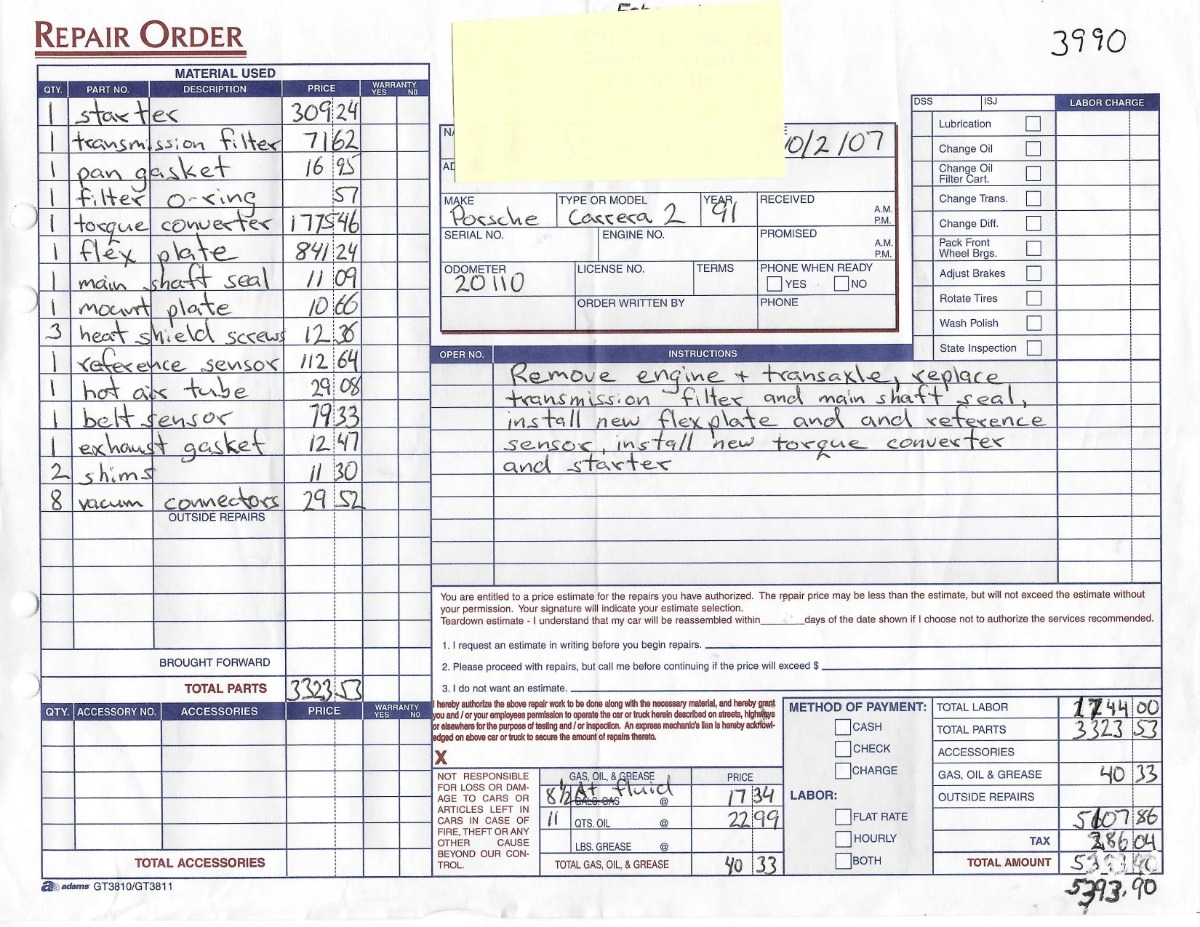 REPAIR ORDER
3990
MATERIAL USED
QTY. PART NO. DESCRIPTION PRICE WARRANTY YES NO
1 starter 309 24
1 transmission filter 71 62
1 pan gasket 16 95
1 filter o-ring 57
1 torque converter 1775 46
1 flex plate 841 24
1 main shaft seal 11 09
1 mount plate 10 66
3 heat shield screws 12 36
1 reference sensor 112 64
1 hot air tube 29 08
1 belt sensor 79 33
1 exhaust gasket 12 47
2 shims 11 30
8 vacum connectors 29 52
OUTSIDE REPAIRS
BROUGHT FORWARD
TOTAL PARTS 3323 53
QTY. ACCESSORY NO. ACCESSORIES PRICE WARRANTY YES NO
TOTAL ACCESSORIES
adams GT3810/GT3811
0/2/07
MAKE Porsche TYPE OR MODEL Carrera 2 YEAR 91 RECEIVED A.M. P.M.
SERIAL NO. ENGINE NO. PROMISED A.M. P.M.
ODOMETER 20110 LICENSE NO. TERMS PHONE WHEN READY YES NO
ORDER WRITTEN BY PHONE
DSS ISJ LABOR CHARGE
Lubrication
Change Oil
Change Oil Filter Cart.
Change Trans.
Change Diff.
Pack Front Wheel Brgs.
Adjust Brakes
Rotate Tires
Wash Polish
State Inspection
OPER NO. INSTRUCTIONS
Remove engine + transaxle, replace
transmission filter and main shaft seal,
install new flexplate and and reference
sensor, install new torque converter
and starter
You are entitled to a price estimate for the repairs you have authorized. The repair price may be less than the estimate, but will not exceed the estimate without
your permission. Your signature will indicate your estimate selection.
Teardown estimate - I understand that my car will be reassembled within______days of the date shown if I choose not to authorize the services recommended.
1. I request an estimate in writing before you begin repairs.
2. Please proceed with repairs, but call me before continuing if the price will exceed $
3. I do not want an estimate.
I hereby authorize the above repair work to be done along with the necessary material, and hereby grant
you and / or your employees permission to operate the car or truck herein described on streets, highways
or elsewhere for the purpose of testing and / or inspection. An express mechanic's lien is hereby acknowl-
edged on above car or truck to secure the amount of repairs thereto.
X
NOT RESPONSIBLE
FOR LOSS OR DAM-
AGE TO CARS OR
ARTICLES LEFT IN
CARS IN CASE OF
FIRE, THEFT OR ANY
OTHER CAUSE
BEYOND OUR CON-
TROL.
GAS, OIL, & GREASE PRICE
8 1/2 At fluid GALS. GAS @ 17 34
11 QTS. OIL @ 22 99
LBS. GREASE @
TOTAL GAS, OIL, & GREASE 40 33
METHOD OF PAYMENT:
CASH
CHECK
CHARGE
LABOR:
FLAT RATE
HOURLY
BOTH
TOTAL LABOR 1744 00
TOTAL PARTS 3323 53
ACCESSORIES
GAS, OIL & GREASE 40 33
OUTSIDE REPAIRS
5107 86
TAX 286 04
TOTAL AMOUNT
5393.90